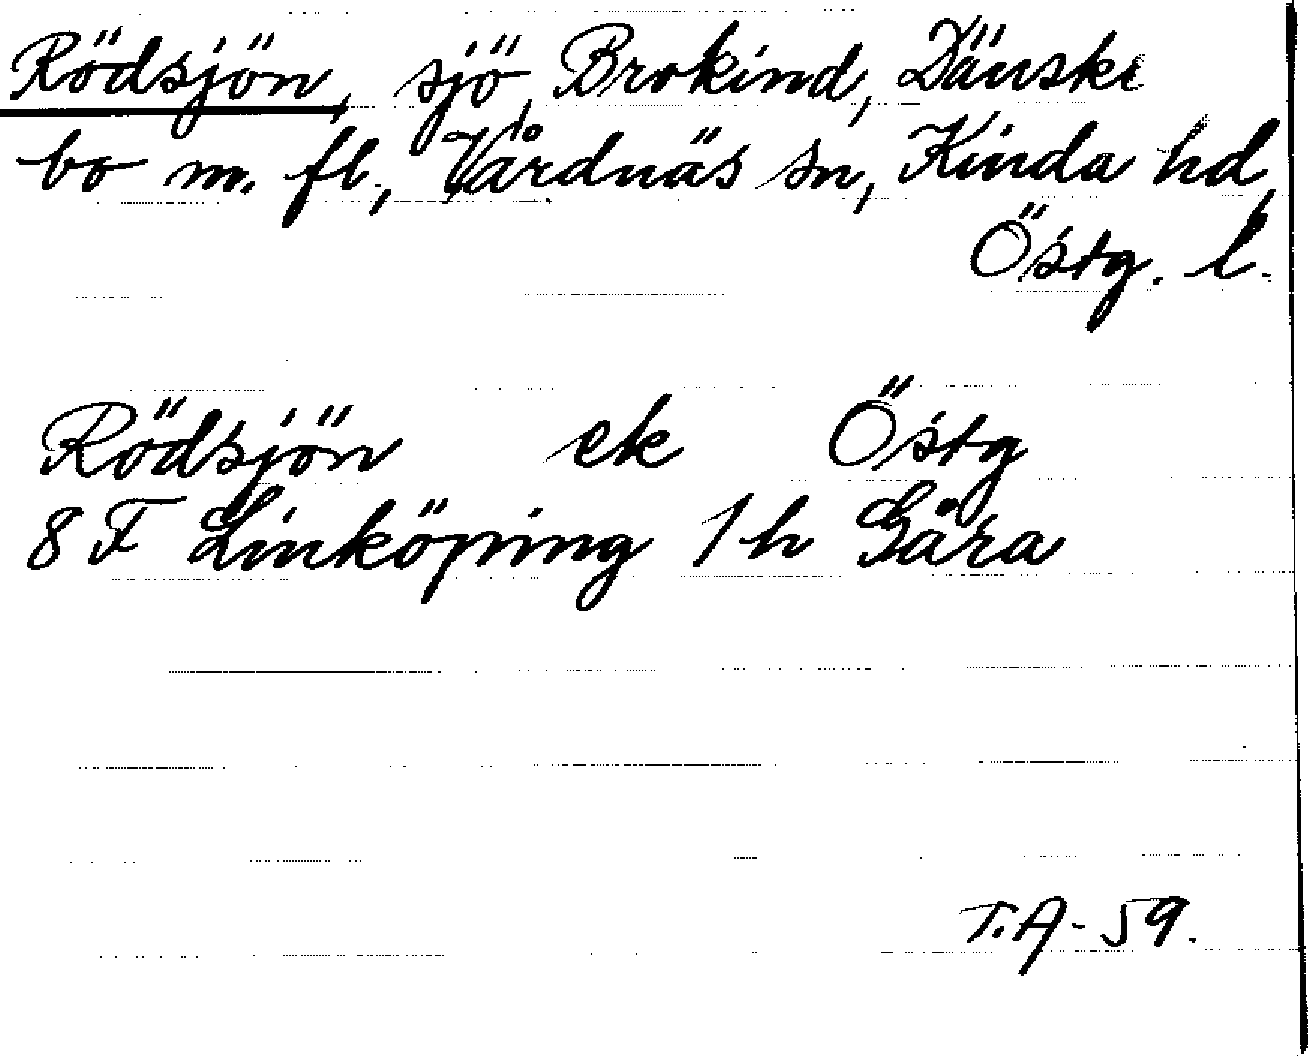 Rödsjön, sjö, Brokind, Dänske
bo m. fl., Vårdnäs sn, Kinda hd,
Östg. l.
Rödsjön ek Östg
8 F Linköping 1 h Gåra
T.A-59.